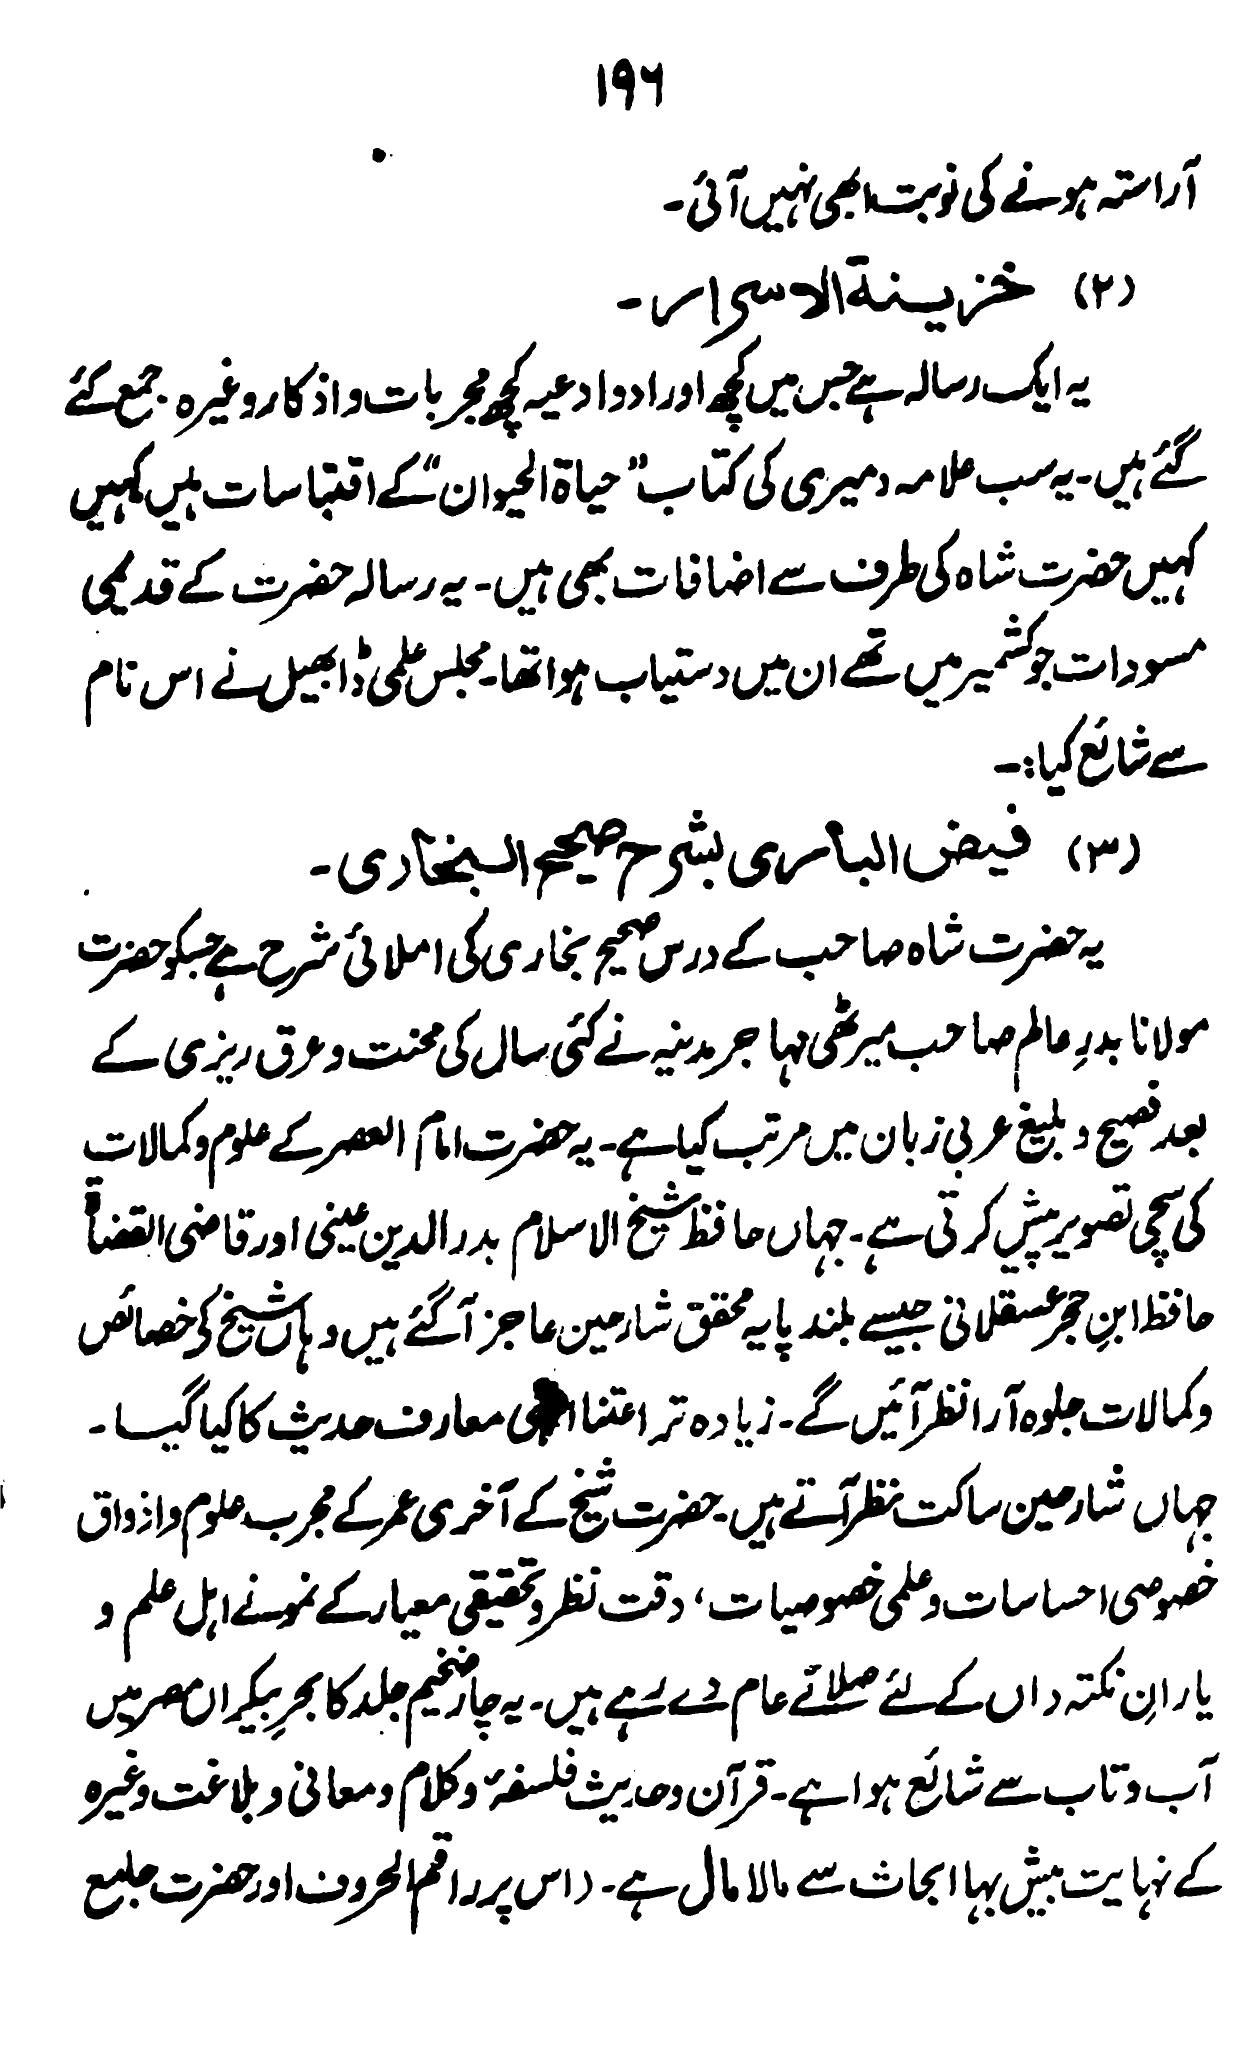 ۱۹۶
آراستہ ہونے کی نوبت ابھی نہیں آئی۔
(۲) خزینة الاسرار۔
یہ ایک رسالہ ہے جس میں کچھ اوراد وادعیہ کچھ مجربات واذکار وغیرہ جمع کئے
گئے ہیں۔ یہ سب علامہ دمیری کی کتاب ”حیاة الحیوان“ کے اقتباسات ہیں کہیں
کہیں حضرت شاہ کی طرف سے اضافات بھی ہیں۔ یہ رسالہ حضرت کے قدیمی
مسودات جو کشمیر میں تھے ان میں دستیاب ہوا تھا۔ مجلس علمی ڈابھیل نے اس نام
سے شائع کیا:۔
(۳) فیض الباری بشرح صحیح البخاری۔
یہ حضرت شاہ صاحب کے درس صحیح بخاری کی املائی شرح ہے جسکو حضرت
مولانا بدرِ عالم صاحب میرٹھی مہاجر مدینہ نے کئی سال کی محنت و عرق ریزی کے
بعد فصیح و بلیغ عربی زبان میں مرتب کیا ہے۔ یہ حضرت امام العصر کے علوم و کمالات
کی سچی تصویر پیش کرتی ہے۔ جہاں حافظ شیخ الاسلام بدر الدین عینی اور قاضی القضاة
حافظ ابنِ حجر عسقلانی جیسے بلند پایہ محقق شارحین عاجز آگئے ہیں وہاں شیخ کی خصائص
و کمالات جلوہ آرا نظر آئیں گے۔ زیادہ تر اعتنا معارف حدیث کا کیا گیا۔
جہاں شارحین ساکت نظر آتے ہیں۔ حضرت شیخ کے آخری عمر کے مجرب علوم واذواق
خصوصی احساسات و علمی خصوصیات، دقت نظر و تحقیقی معیار کے نمونے اہل علم و
یارانِ نکتہ داں کے لئے صلائے عام دے رہے ہیں۔ یہ چار ضخیم جلد کا بحرِ بیکراں مصر میں
آب و تاب سے شائع ہوا ہے۔ قرآن و حدیث فلسفۂ و کلام و معانی و بلاغت وغیرہ
کے نہایت بیش بہا ابحاث سے مالا مال ہے۔ (اس پر راقم الحروف اور حضرت جامع